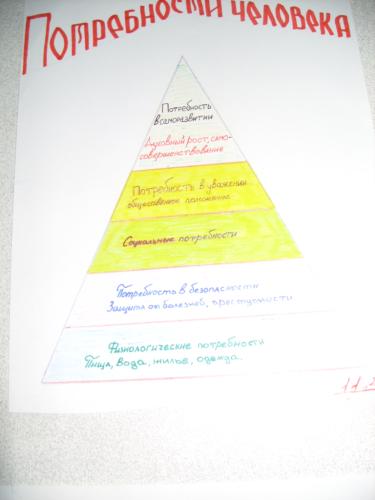 Потребности человека
Потребность
в саморазвитии
Духовный рост, само-
совершенствование
Потребность в уважении
общественное положение
Социальные потребности
Потребность в безопасности
Защита от болезней, преступности
Физиологические потребности
Пища, вода, жилье, одежда.